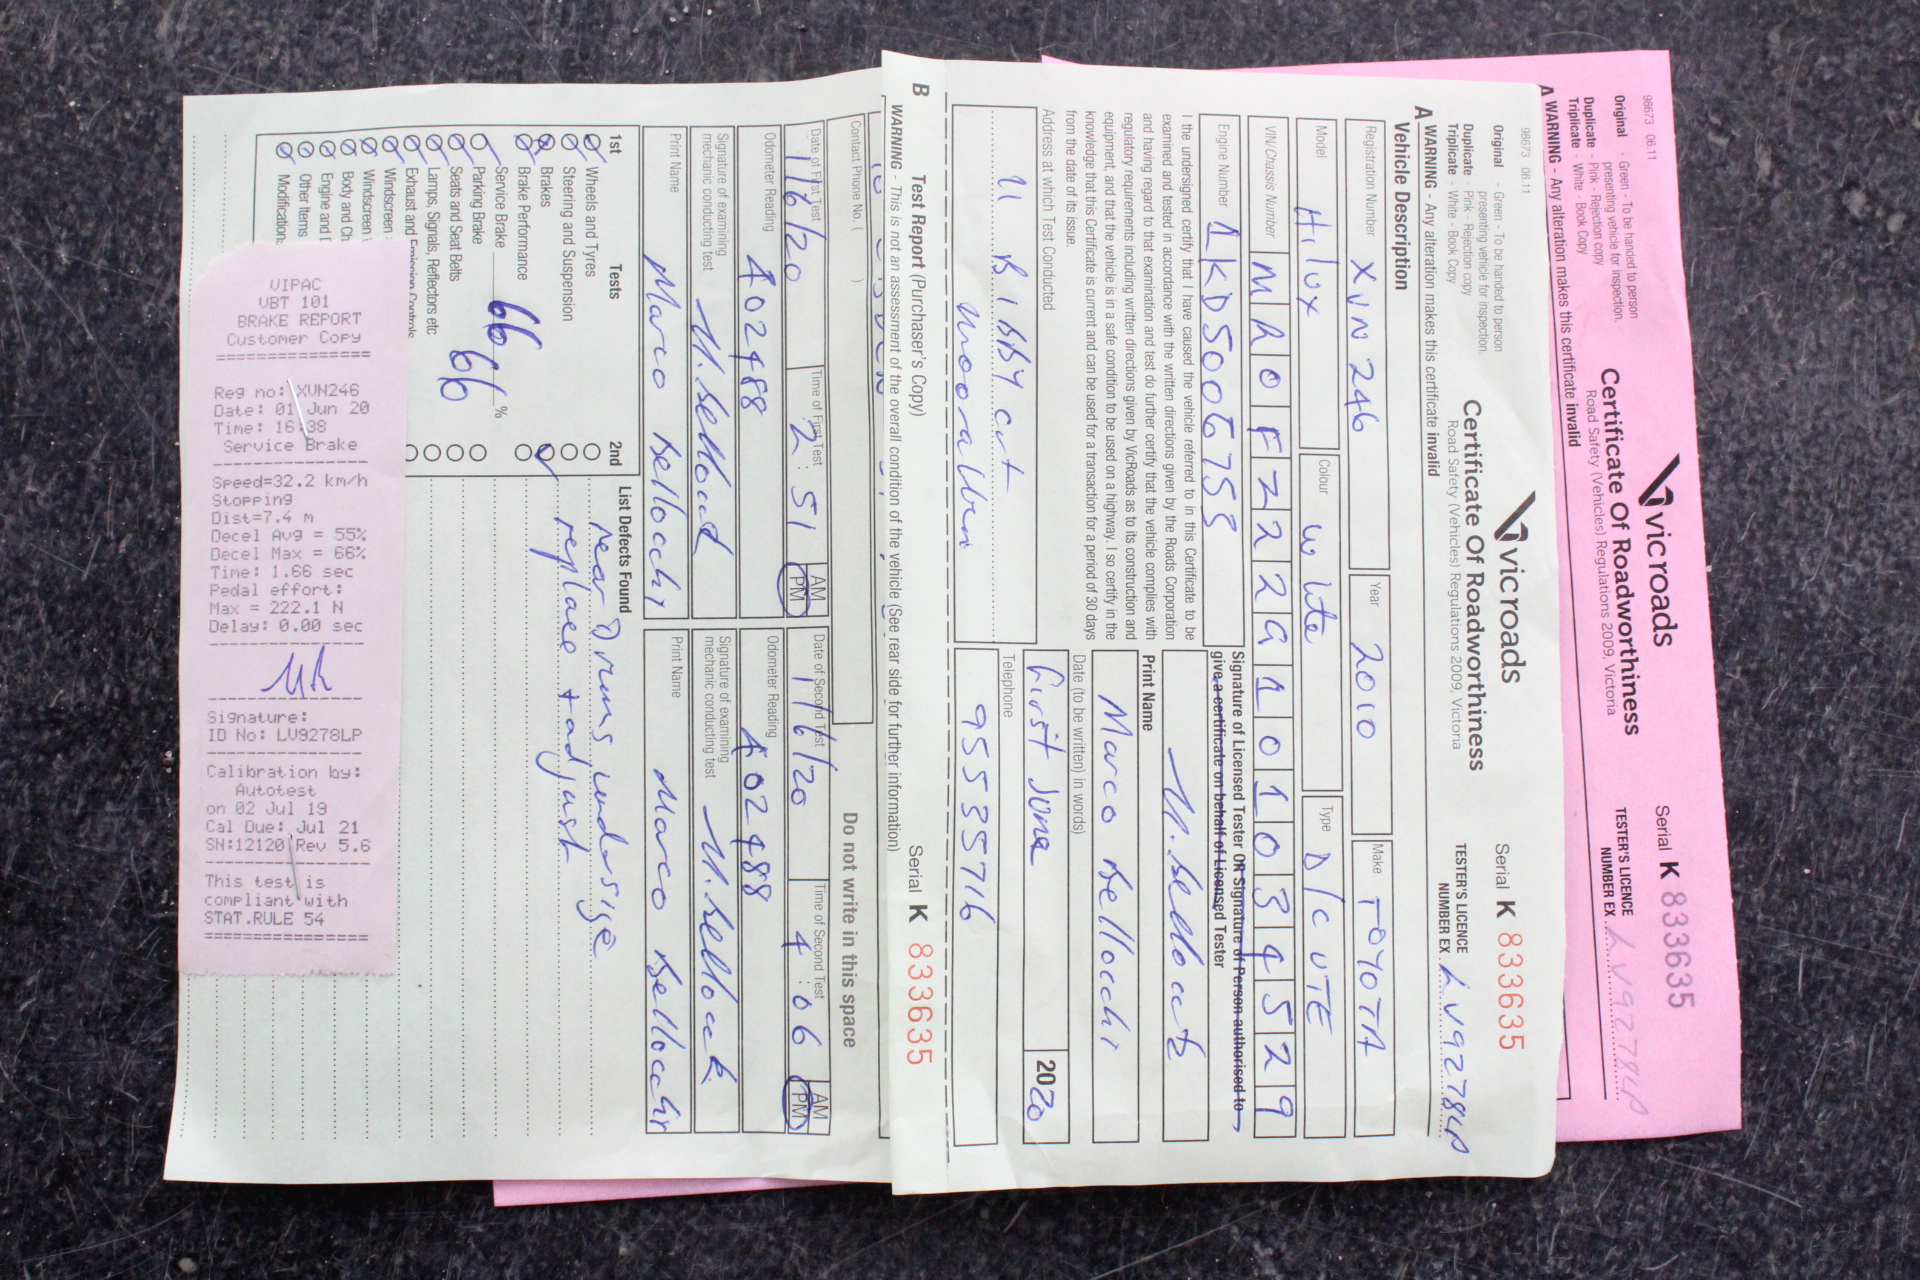 98673 06.11
Original - Green - To be handed to person
presenting vehicle for inspection.
Duplicate - Pink - Rejection copy
Triplicate - White - Book Copy
vicroads
Certificate Of Roadworthiness
Road Safety (Vehicles) Regulations 2009, Victoria
Serial K 833635
TESTER'S LICENCE
NUMBER EX. LV9278LP
A WARNING - Any alteration makes this certificate invalid
98673 06.11
Original - Green - To be handed to person
presenting vehicle for inspection.
Duplicate - Pink - Rejection copy
Triplicate - White - Book Copy
vicroads
Certificate Of Roadworthiness
Road Safety (Vehicles) Regulations 2009, Victoria
Serial K 833635
TESTER'S LICENCE
NUMBER EX. LV9278LP
A WARNING - Any alteration makes this certificate invalid
Vehicle Description
Registration Number XVN 246
Year 2010
Make TOYOTA
Model Hilux
Colour white
Type D/C UTE
VIN/Chassis Number MR0FZ22G101034529
Engine Number 1KD5006758
I the undersigned certify that I have caused the vehicle referred to in this Certificate to be
examined and tested in accordance with the written directions given by the Roads Corporation
and having regard to that examination and test do further certify that the vehicle complies with
regulatory requirements including written directions given by VicRoads as to its construction and
equipment, and that the vehicle is in a safe condition to be used on a highway. I so certify in the
knowledge that this Certificate is current and can be used for a transaction for a period of 30 days
from the date of its issue.
Signature of Licensed Tester OR Signature of Person authorised to
give a certificate on behalf of Licensed Tester
Print Name
Marco Bellocchi
Date (to be written) in words)
first June 2020
Address at which Test Conducted
11 Bibby crt
Moorabbin
Telephone
95535716
B Test Report (Purchaser's Copy)
Serial K 833635
WARNING - This is not an assessment of the overall condition of the vehicle (See rear side for further information)
Contact Phone No. ( )
Do not write in this space
Date of First Test 1/6/20
Time of First Test 2:51 AM PM
Date of Second Test 1/6/20
Time of Second Test 4:06 AM PM
Odometer Reading 402488
Odometer Reading 402488
Signature of examining
mechanic conducting test
Signature of examining
mechanic conducting test
Print Name Marco Bellocchi
Print Name Marco Bellocchi
1st Tests 2nd List Defects Found
Wheels and Tyres
Steering and Suspension
Brakes
Brake Performance
Service Brake 66 %
Parking Brake 66
Seats and Seat Belts
Lamps, Signals, Reflectors etc
Exhaust and Emission Controls
Windscreen
Windscreen
Body and Ch
Engine and D
Other Items
Modification
rear Drums undersize
replace + adjust
VIPAC
VBT 101
BRAKE REPORT
Customer Copy
Reg no: XVN246
Date: 01 Jun 20
Time: 16:38
Service Brake
Speed=32.2 km/h
Stopping
Dist=7.4 m
Decel Avg = 55%
Decel Max = 66%
Time: 1.66 sec
Pedal effort:
Max = 222.1 N
Delay: 0.00 sec
Signature:
ID No: LV9278LP
Calibration by:
Autotest
on 02 Jul 19
Cal Due: Jul 21
SN:12120 Rev 5.6
This test is
compliant with
STAT.RULE 54